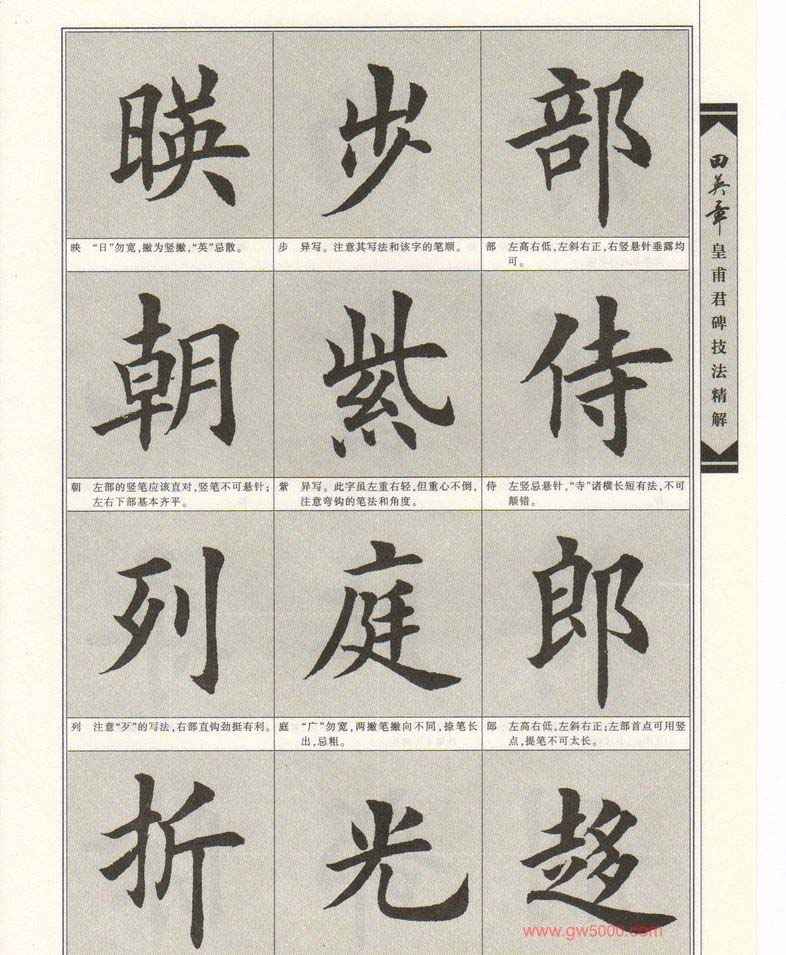 映
步
部
映 “日”勿宽,撇为竖撇,“英”忌散。
步 异写。注意其写法和该字的笔顺。
部 左高右低,左斜右正,右竖悬针垂露均
可。
朝
紫
侍
朝 左部的竖笔应该直对,竖笔不可悬针;
左右下部基本齐平。
紫 异写。此字虽左重右轻,但重心不倒,
注意弯钩的笔法和角度。
侍 左竖忌悬针,“寺”诸横长短有法,不可
颠错。
列
庭
郎
列 注意“歹”的写法,右部直钩劲挺有利。
庭 “广”勿宽,两撇笔撇向不同,捺笔长
出,忌粗。
郎 左高右低,左斜右正;左部首点可用竖
点,提笔不可太长。
折
光
趍
田英章
皇甫君碑技法精解
www.gw5000.com